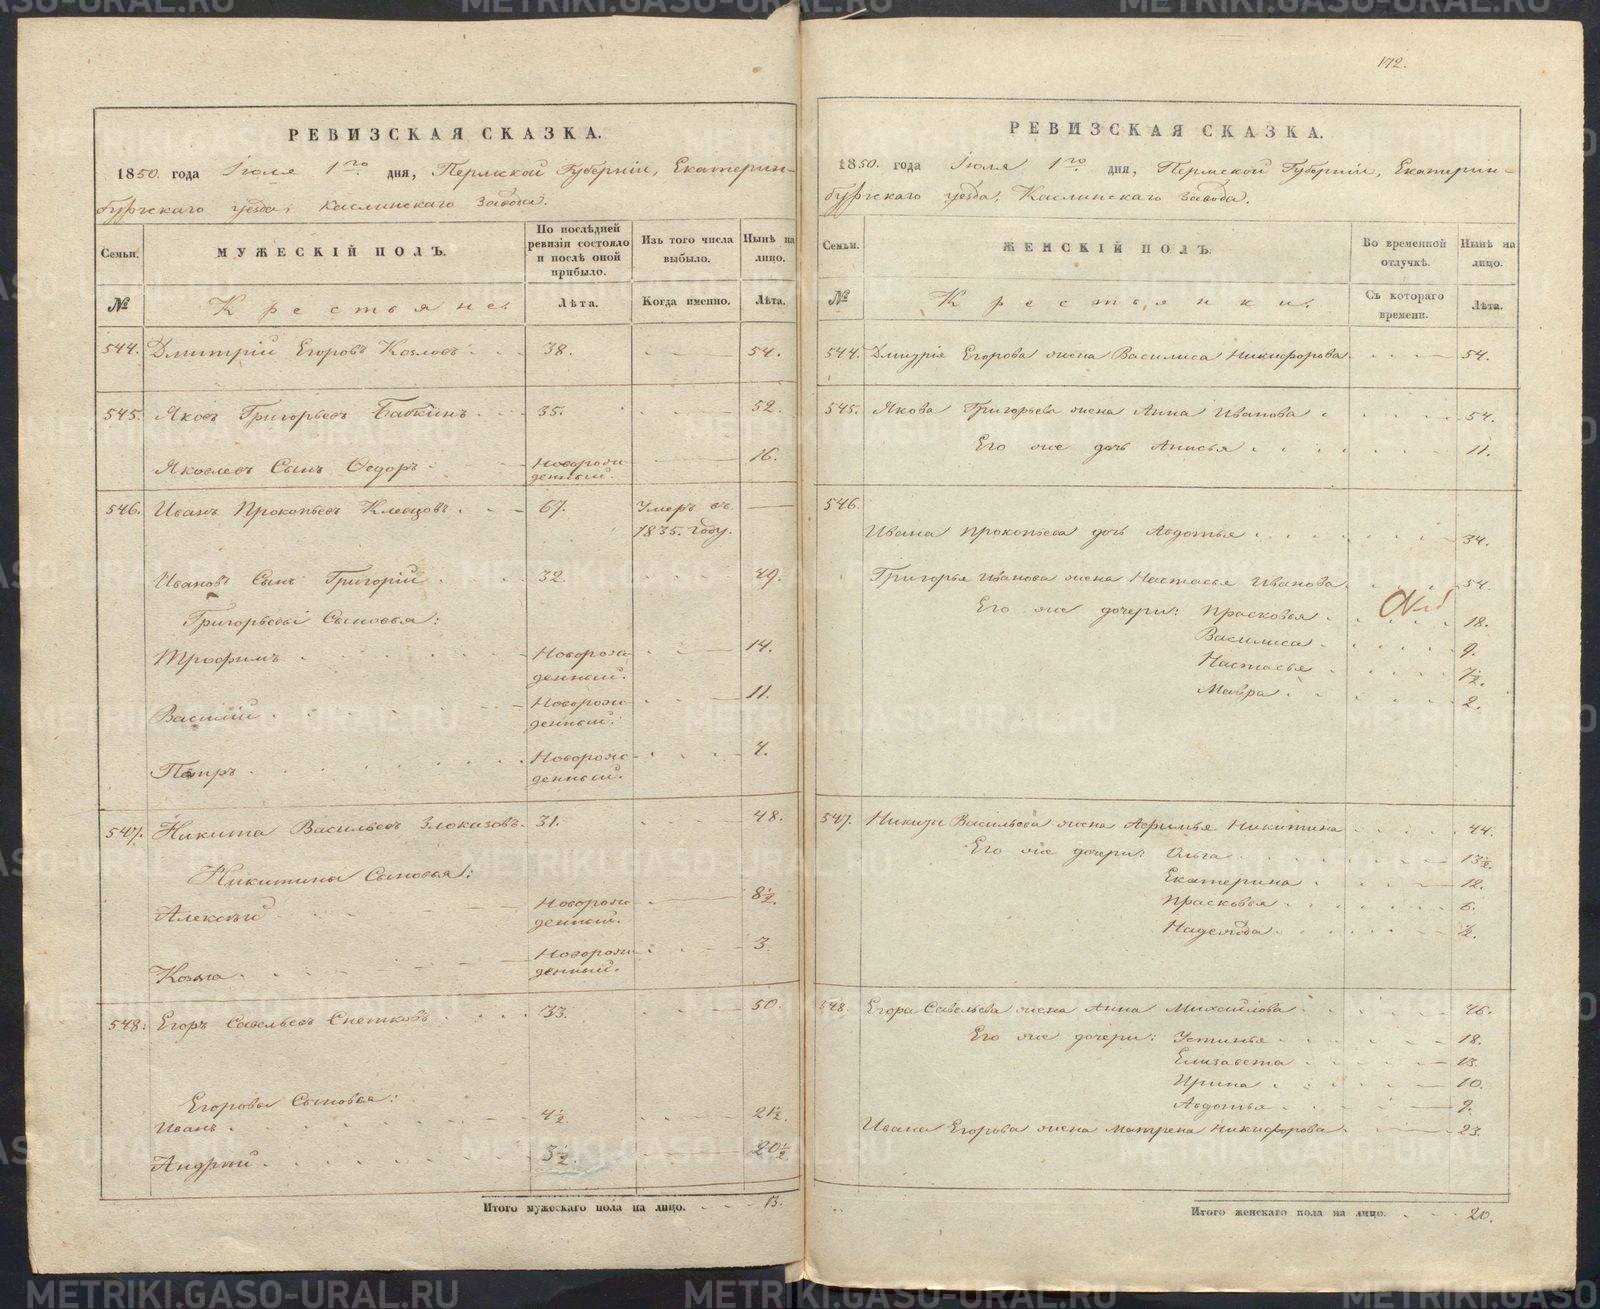 РЕВИЗСКАЯ СКАЗКА.
1850. года Іюля 1го. дня, Пермской Губерніи, Екатерин-
бургскаго уезда, Каслинскаго завода.
Семьи.
МУЖЕСКІЙ ПОЛЪ.
По послѣдней ревизіи состояло и послѣ оной прибыло.
Изъ того числа выбыло.
Нынѣ на лицо.
№
Крестьяне.
Лѣта.
Когда именно.
Лѣта.
544. Дмитрій Егоровъ Козловъ 38. 54.
545. Яковъ Григорьевъ Бабкинъ 35. 52.
Яковлевъ Сынъ Федоръ Новорож- 16.
денный.
546. Иванъ Прокопьевъ Клевцовъ 67. Умеръ въ
1835. году.
Ивановъ Сынъ Григорій 32. 49.
Григорьевы Сыновья:
Трофимъ Новорож- 14.
денный.
Василій Новорож- 11.
денный.
Петръ Новорож- 4.
денный.
547. Никита Васильевъ Злоказовъ 31. 48.
Никитины Сыновья:
Алексѣй Новорож- 8½.
денный.
Козма Новорож- 3.
денный.
548. Егоръ Савельевъ Снетковъ 33. 50.
Егоровы Сыновья:
Иванъ 4½. 21½.
Андрей 3½. 20½
Итого мужескаго пола на лицо. 13.
172.
РЕВИЗСКАЯ СКАЗКА.
1850. года Іюля 1го. дня, Пермской Губерніи, Екатерин-
бургскаго уезда, Каслинскаго завода.
Семьи.
ЖЕНСКІЙ ПОЛЪ.
Во временной отлучкѣ.
Нынѣ на лицо.
№
Крестьянки.
Съ котораго времени.
Лѣта.
544. Дмитрія Егорова жена Василиса Никифорова 54.
545. Якова Григорьева жена Анна Иванова 54.
Его же дочь Анисья 11.
546.
Ивана Прокопьева дочь Авдотья 34.
Григорья Иванова жена Настасья Иванова 54.
Его же дочери: Прасковья 18.
Василиса 9.
Настасья 7½.
Мавра 2.
547. Никиты Васильева жена Афимья Никитина 44.
Его же дочери: Ольга 13½.
Екатерина 12.
Прасковья 6.
Надежда ½.
548. Егора Савельева жена Анна Михайлова 46.
Его же дочери: Устинья 18.
Елизавета 13.
Ирина 10.
Авдотья 9.
Ивана Егорова жена Матрена Никифорова 23.
Итого женскаго пола на лицо. 20.
METRIKI.GASO-URAL.RU